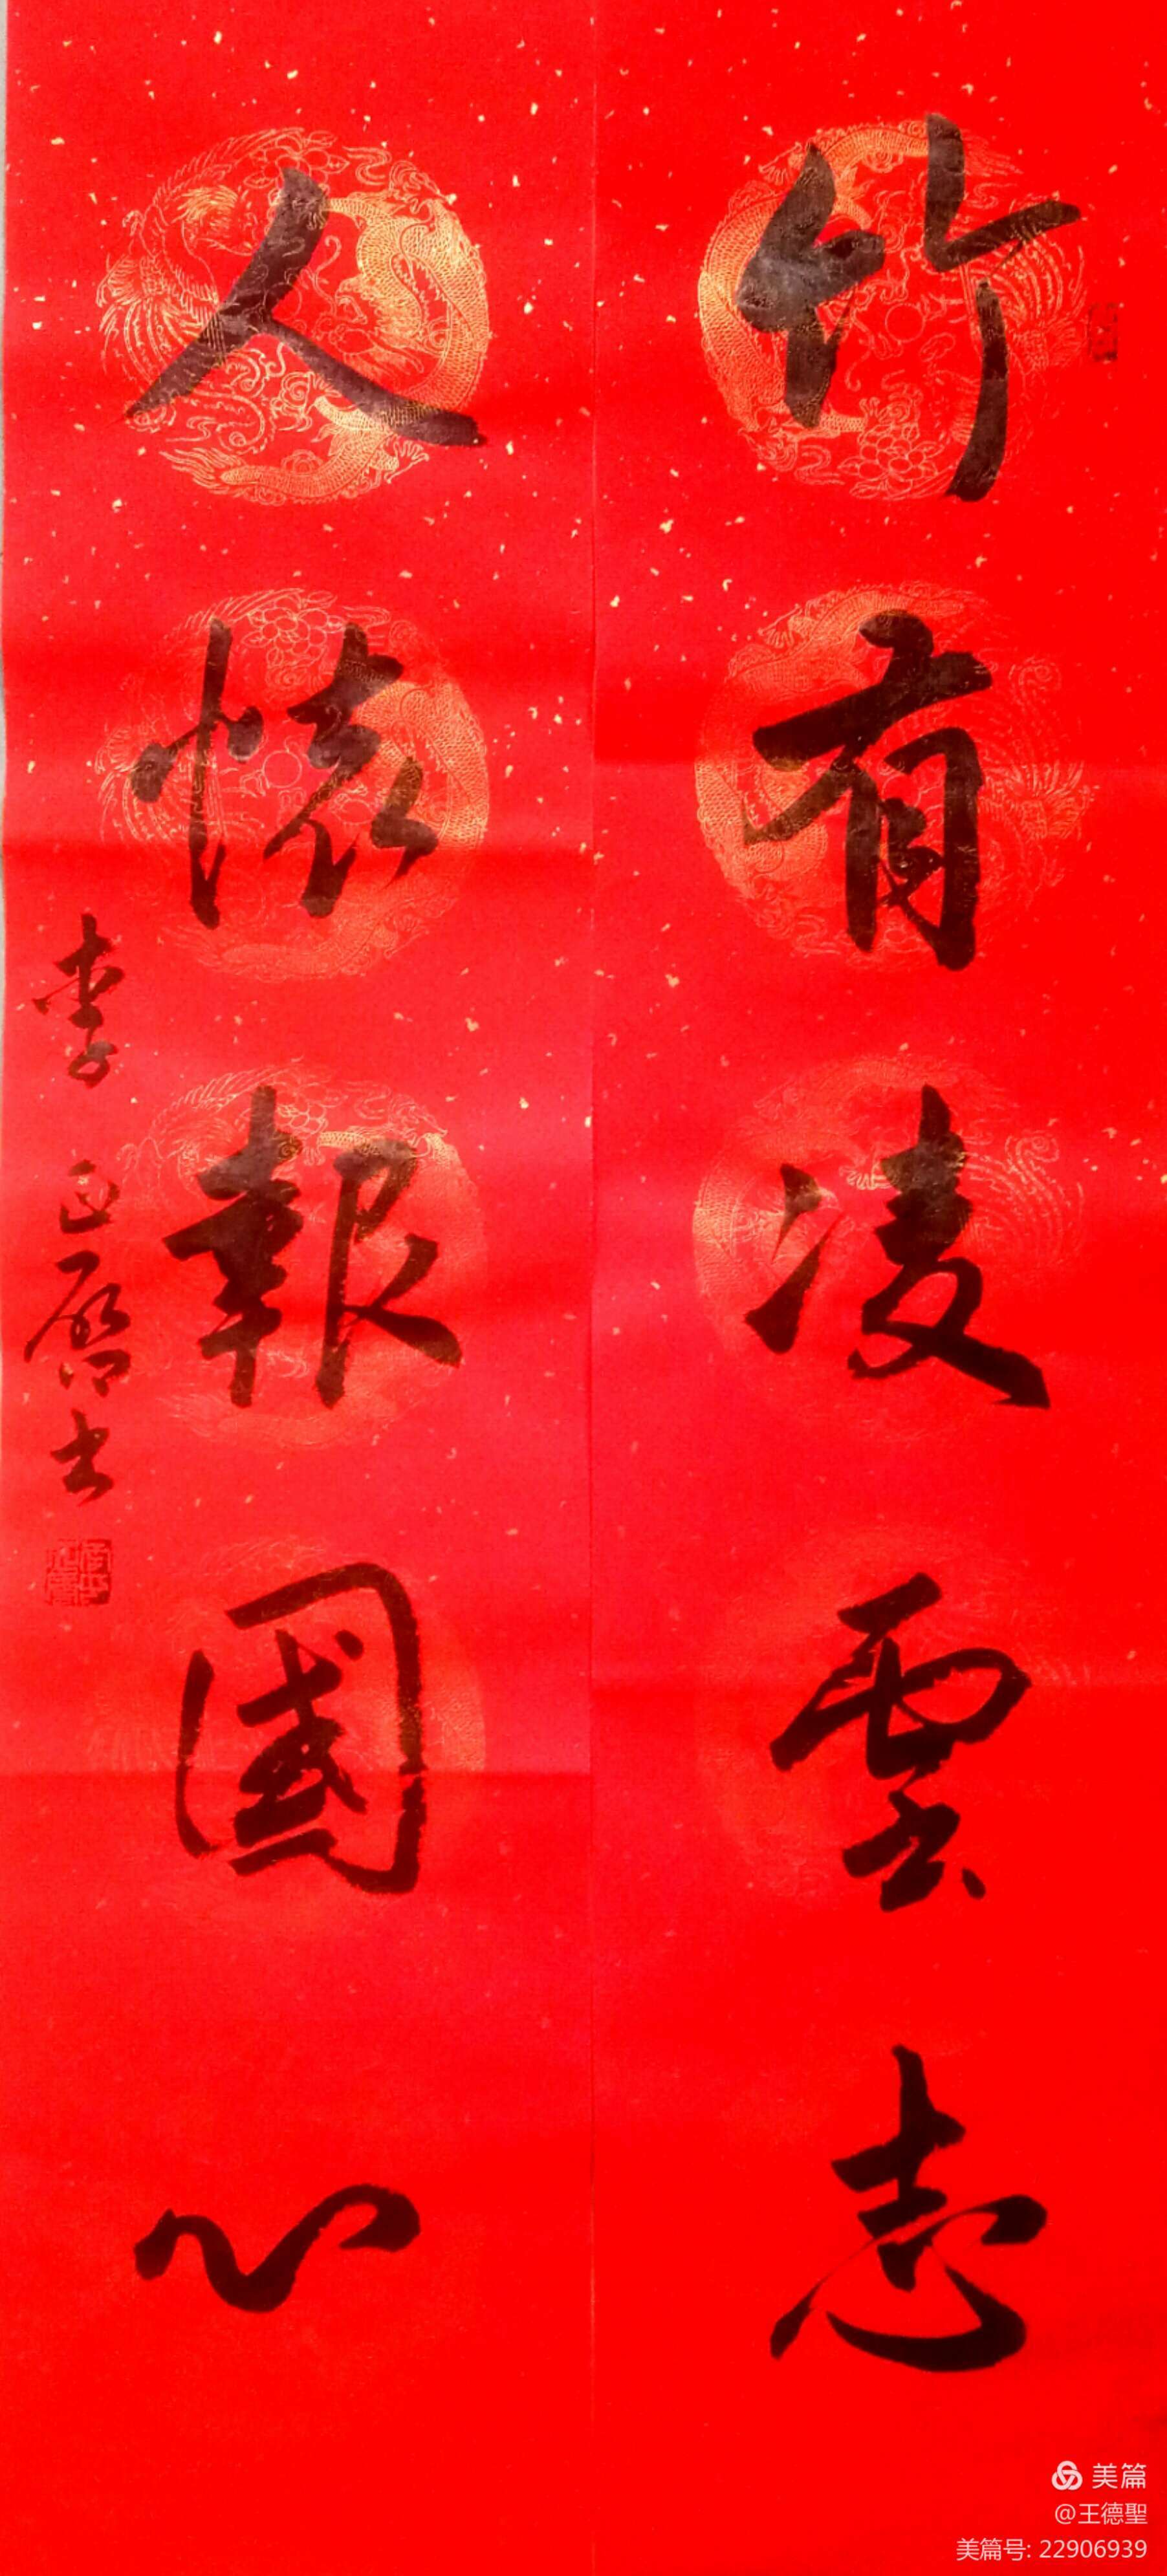 竹有凌雲志
人懷報國心
李正啓书
美篇
@王德聖
美篇号: 22906939